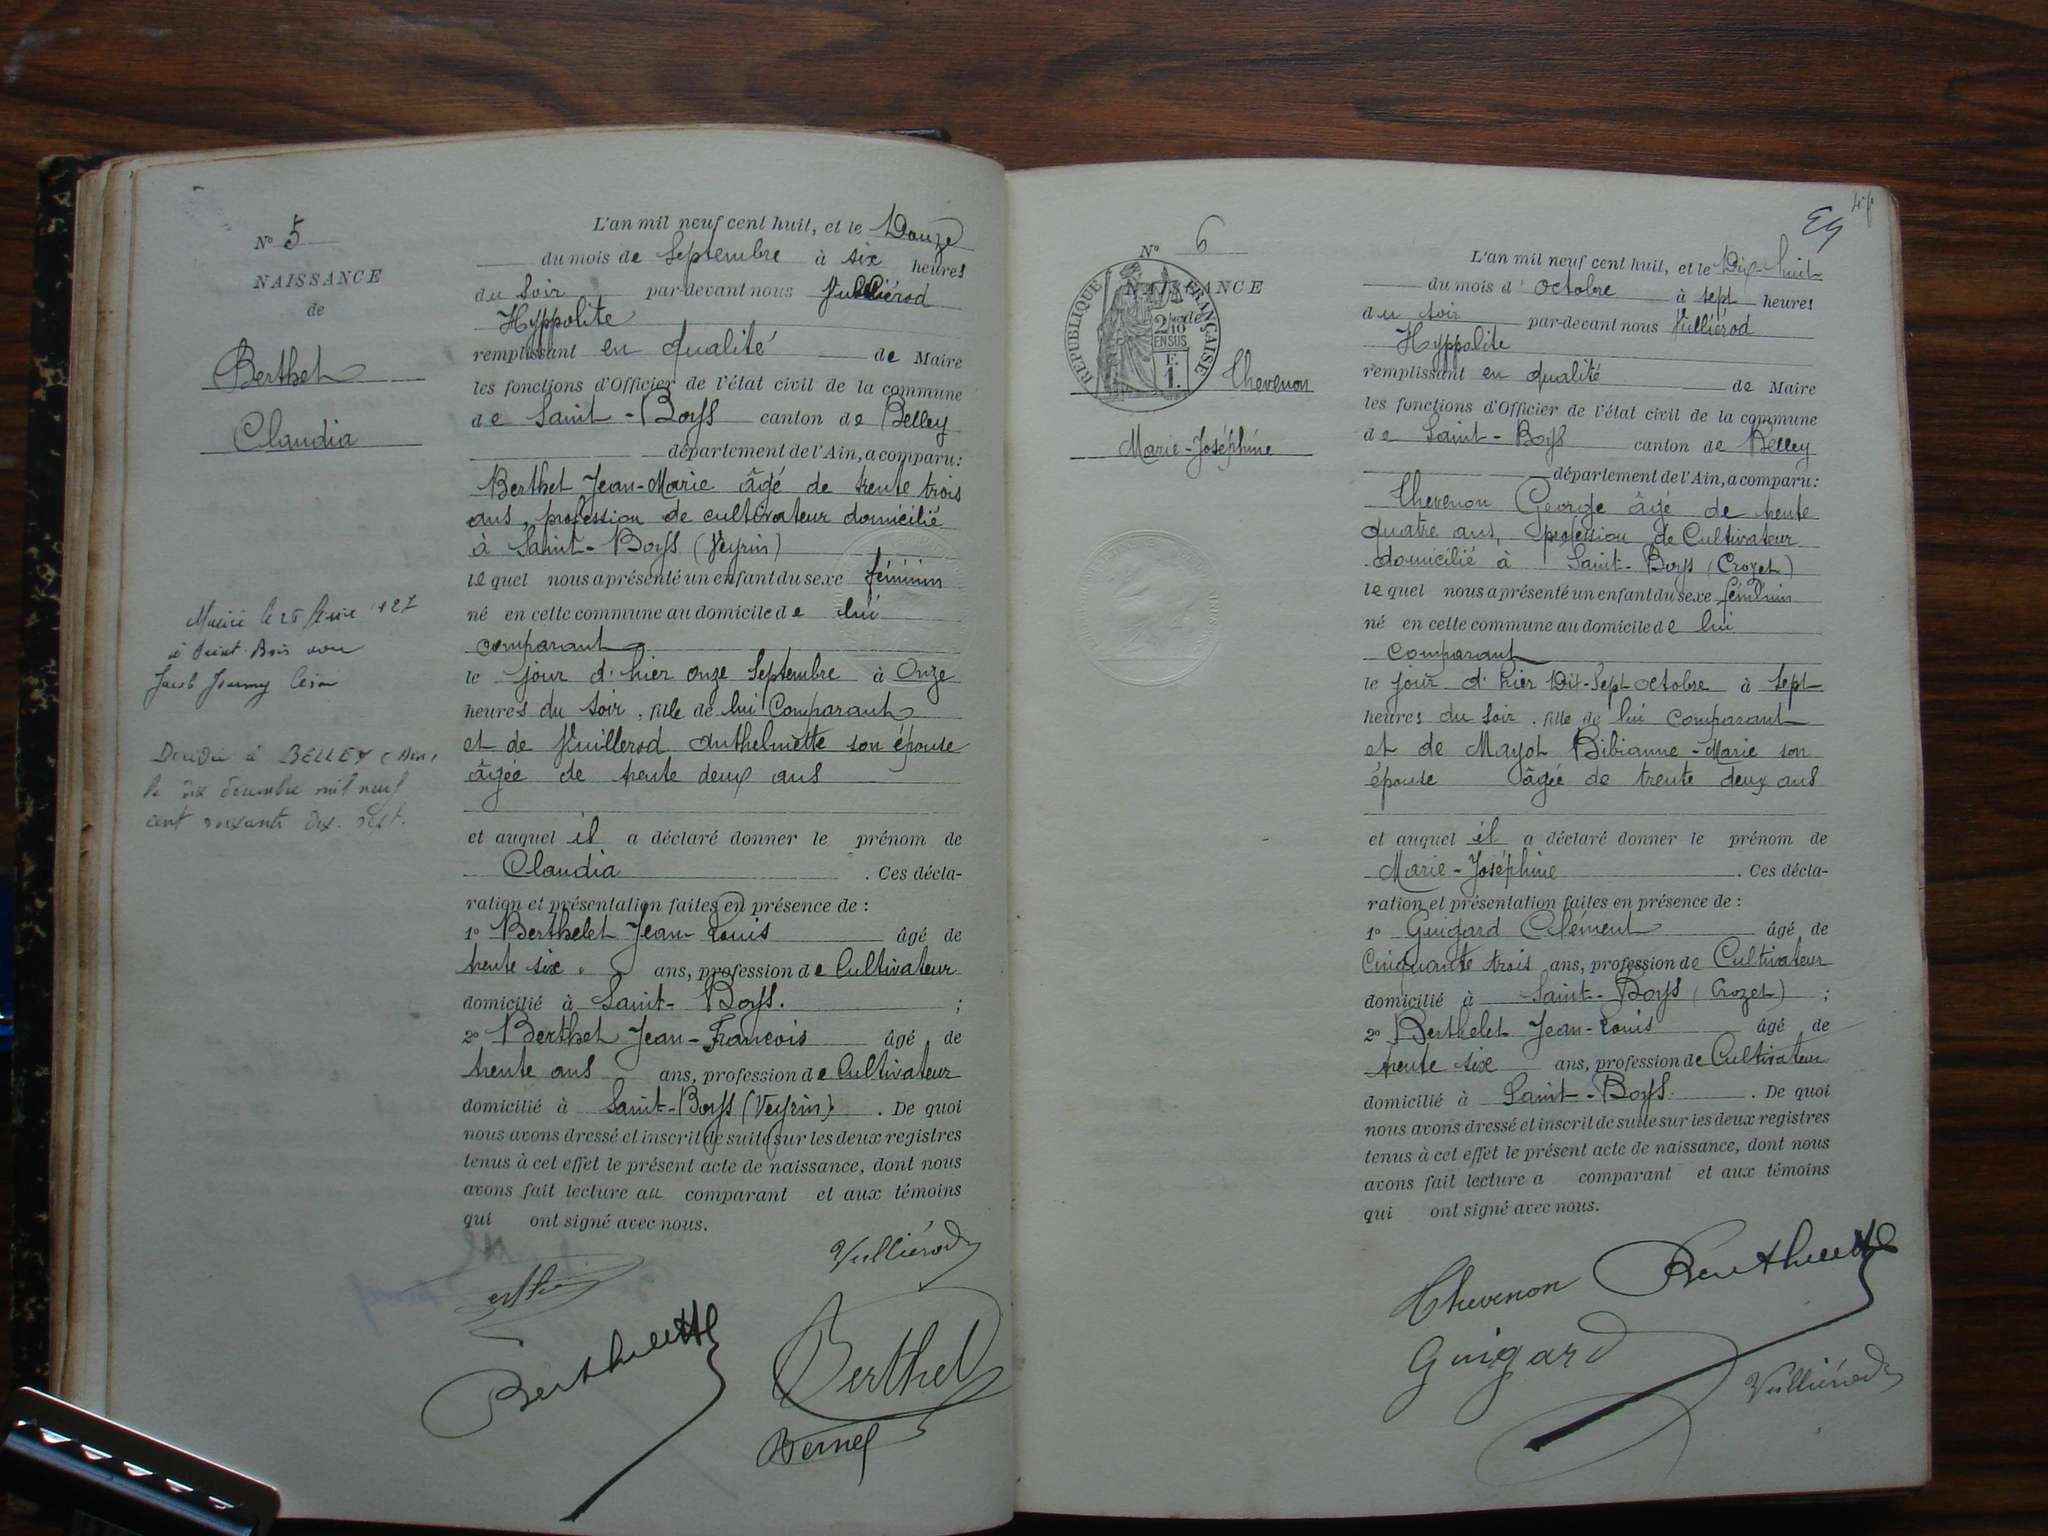 N° 5
NAISSANCE
de
Berthet
Claudia
Marié le 26 1927
à Saint-Bois avec
Jacob
Décédée à BELLEY (Ain)
le dix décembre mil neuf
cent soixante dix-sept.
L'an mil neuf cent huit, et le Douze
du mois de Septembre à six heures
du Soir par-devant nous Vulliérod
Hyppolite
remplissant en qualité de Maire
les fonctions d'Officier de l'état civil de la commune
de Saint-Boys canton de Belley
département de l'Ain, a comparu:
Berthet Jean-Marie âgé de trente trois
ans, profession de cultivateur domicilié
à Saint-Boys (Veyrin)
lequel nous a présenté un enfant du sexe féminin
né en cette commune au domicile de lui
comparant
le jour d'hier onze Septembre à Onze
heures du Soir, fille de lui Comparant
et de Vuillerod Anthelmette son épouse
âgée de trente deux ans
et auquel il a déclaré donner le prénom de
Claudia . Ces décla-
ration et présentation faites en présence de :
1° Berthelet Jean-Louis âgé de
trente six ans, profession de Cultivateur
domicilié à Saint-Boys. ;
2° Berthet Jean-Francois âgé de
trente ans ans, profession de Cultivateur
domicilié à Saint-Boys (Veyrin). De quoi
nous avons dressé et inscrit de suite sur les deux registres
tenus à cet effet le présent acte de naissance, dont nous
avons fait lecture au comparant et aux témoins
qui ont signé avec nous.
Vulliérod
Berthelet
Berthet
47
N° 6
NAISSANCE
de
RÉPUBLIQUE FRANÇAISE
2/10
EN SUS
F.
1.
Thevenon
Marie-Joséphine
L'an mil neuf cent huit, et le Dix-huit
du mois d'Octobre à sept heures
du soir par-devant nous Vulliérod
Hyppolite
remplissant en qualité de Maire
les fonctions d'Officier de l'état civil de la commune
de Saint-Boys canton de Belley
département de l'Ain, a comparu:
Thevenon George âgé de trente
quatre ans, profession de Cultivateur
domicilié à Saint-Boys (Crozet)
lequel nous a présenté un enfant du sexe féminin
né en cette commune au domicile de lui
comparant
le jour d'hier Dit-Sept octobre à sept
heures du Soir, fille de lui Comparant
et de Mayot Bibianne-Marie son
épouse âgée de trente deux ans
et auquel il a déclaré donner le prénom de
Marie-Joséphine . Ces décla-
ration et présentation faites en présence de :
1° Guigard Clément âgé de
Cinquante trois ans, profession de Cultivateur
domicilié à Saint-Boys (Crozet) ;
2° Berthelet Jean-Louis âgé de
trente six ans, profession de Cultivateur
domicilié à Saint-Boys. . De quoi
nous avons dressé et inscrit de suite sur les deux registres
tenus à cet effet le présent acte de naissance, dont nous
avons fait lecture a comparant et aux témoins
qui ont signé avec nous.
Thevenon Berthelet
Guigard
Vulliérod